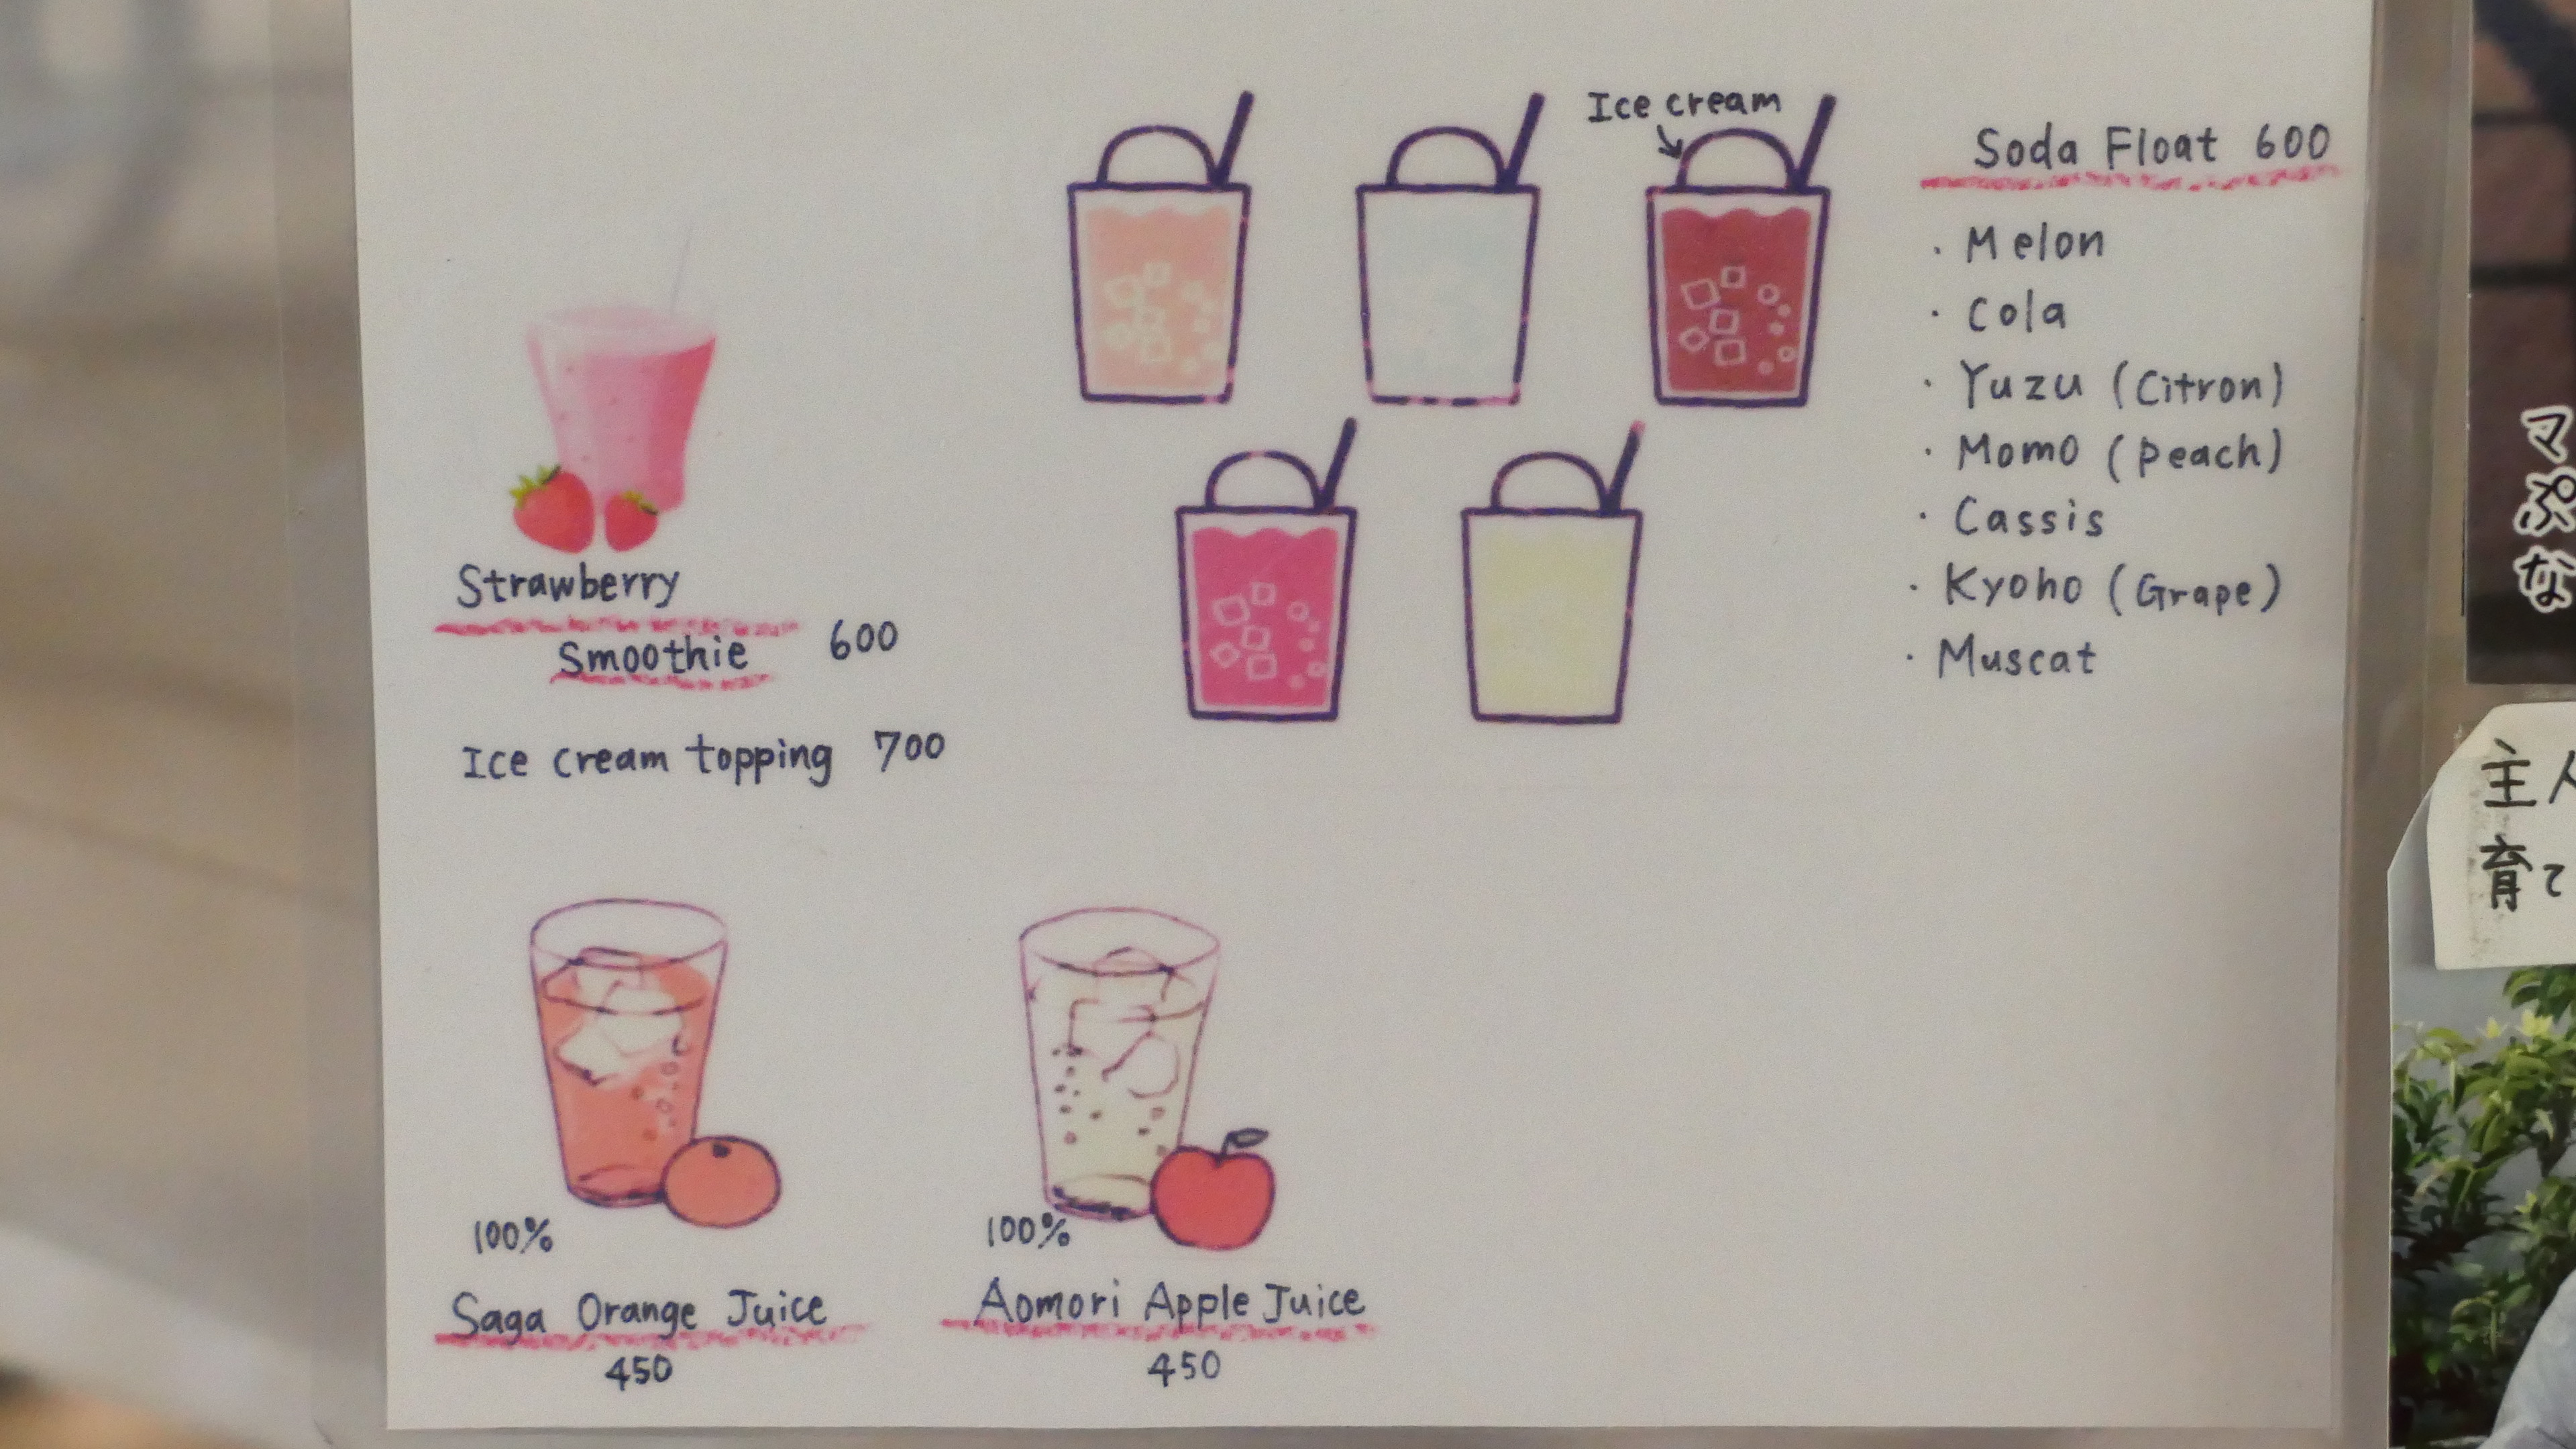 Ice cream
Soda Float 600
・Melon
・Cola
・Yuzu (Citron)
・Momo (peach)
・Cassis
・Kyoho (Grape)
・Muscat
Strawberry
Smoothie 600
Ice cream topping 700
100%
Saga Orange Juice
450
100%
Aomori Apple Juice
450
マ
ぷ
な
主人
育て